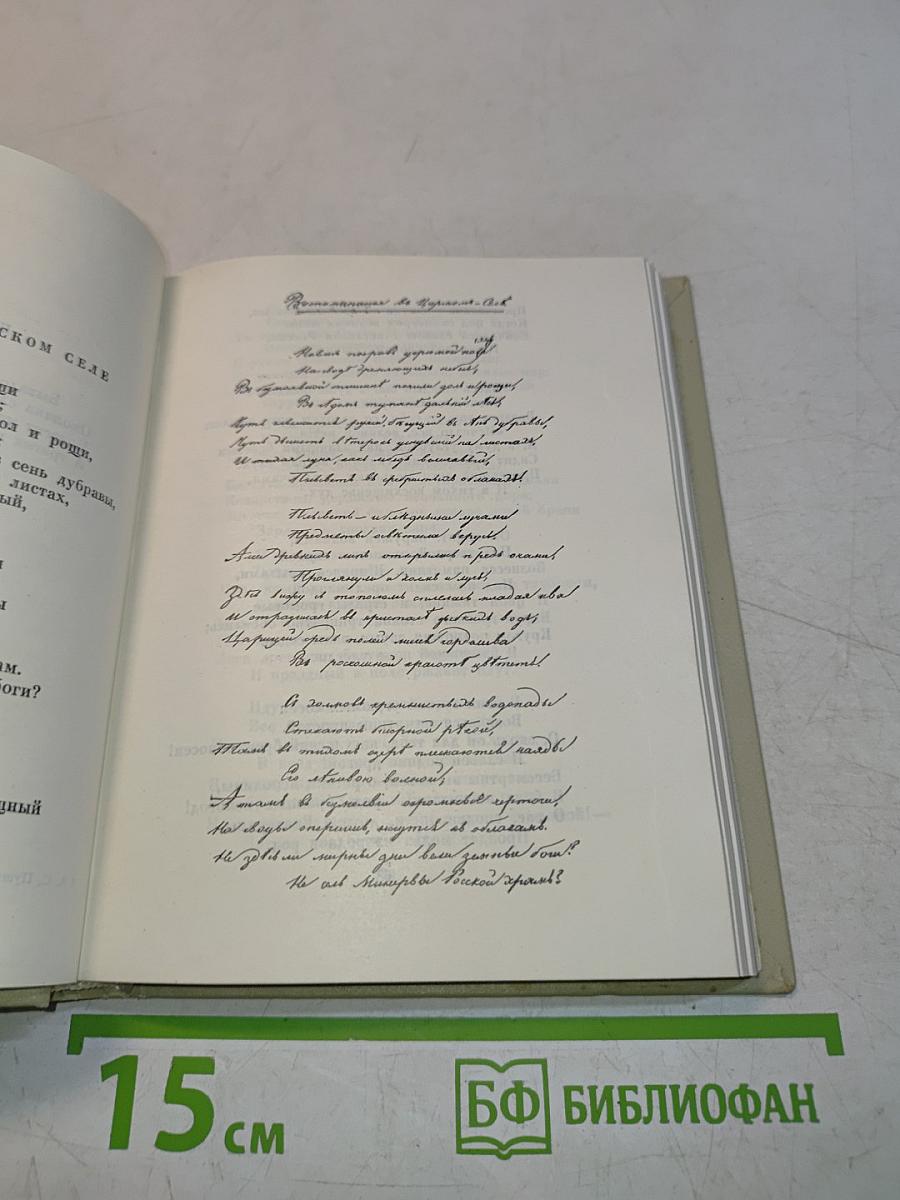 СКОМ СЕЛЕ
щи
ол и рощи,
сень дубравы,
листах,
ый,
и
ы
ам.
боги?
щный
Воспоминанія въ Царскомъ-Селѣ
Навис покровъ угрюмой нощи
На сводѣ дремлющихъ небесъ,
Въ безмолвной тишинѣ почили долъ и рощи,
Въ сѣдомъ туманѣ дальній лѣсъ,
Чуть слышится ручей, бѣгущій въ сѣнь дубравы,
Чуть дышетъ вѣтерокъ уснувшій на листахъ,
И тихая луна, какъ лебедь величавый,
Плыветъ въ сребристыхъ облакахъ!
Плыветъ — и блѣдными лучами
Предметы освѣтила вкругъ,
Алеи древнихъ липъ открылись предъ очами,
Проглянули и холмъ и лугъ,
Здѣсь вижу съ тополомъ сплелась младая ива
И отразилася въ кристалѣ зыбкихъ водъ,
Царицей средь полей лилея горделива
Въ роскошной красотѣ цвѣтетъ!
Съ холмовъ кремнистыхъ водопады
Стекаютъ бисерной рѣкой,
Тамъ въ тихомъ озерѣ плескаются наяды
Его лѣнивою волной,
А тамъ въ безмолвіи огромные чертоги,
На своды опершись, несутся къ облакамъ.
Не здѣсь ли мирны дни вели земные боги?
Не се ль Минервы Росской храмъ?
15 см
БФ БИБЛИОФАН